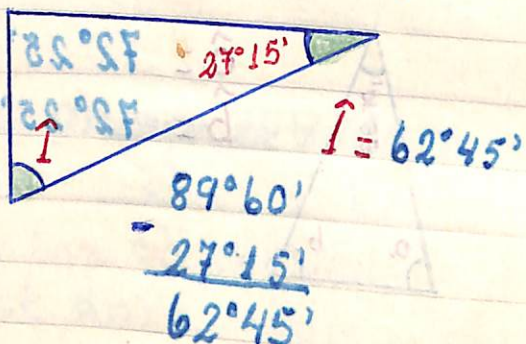 27°15'
Î
Î = 62°45'
89°60'
- 27°15'
62°45'